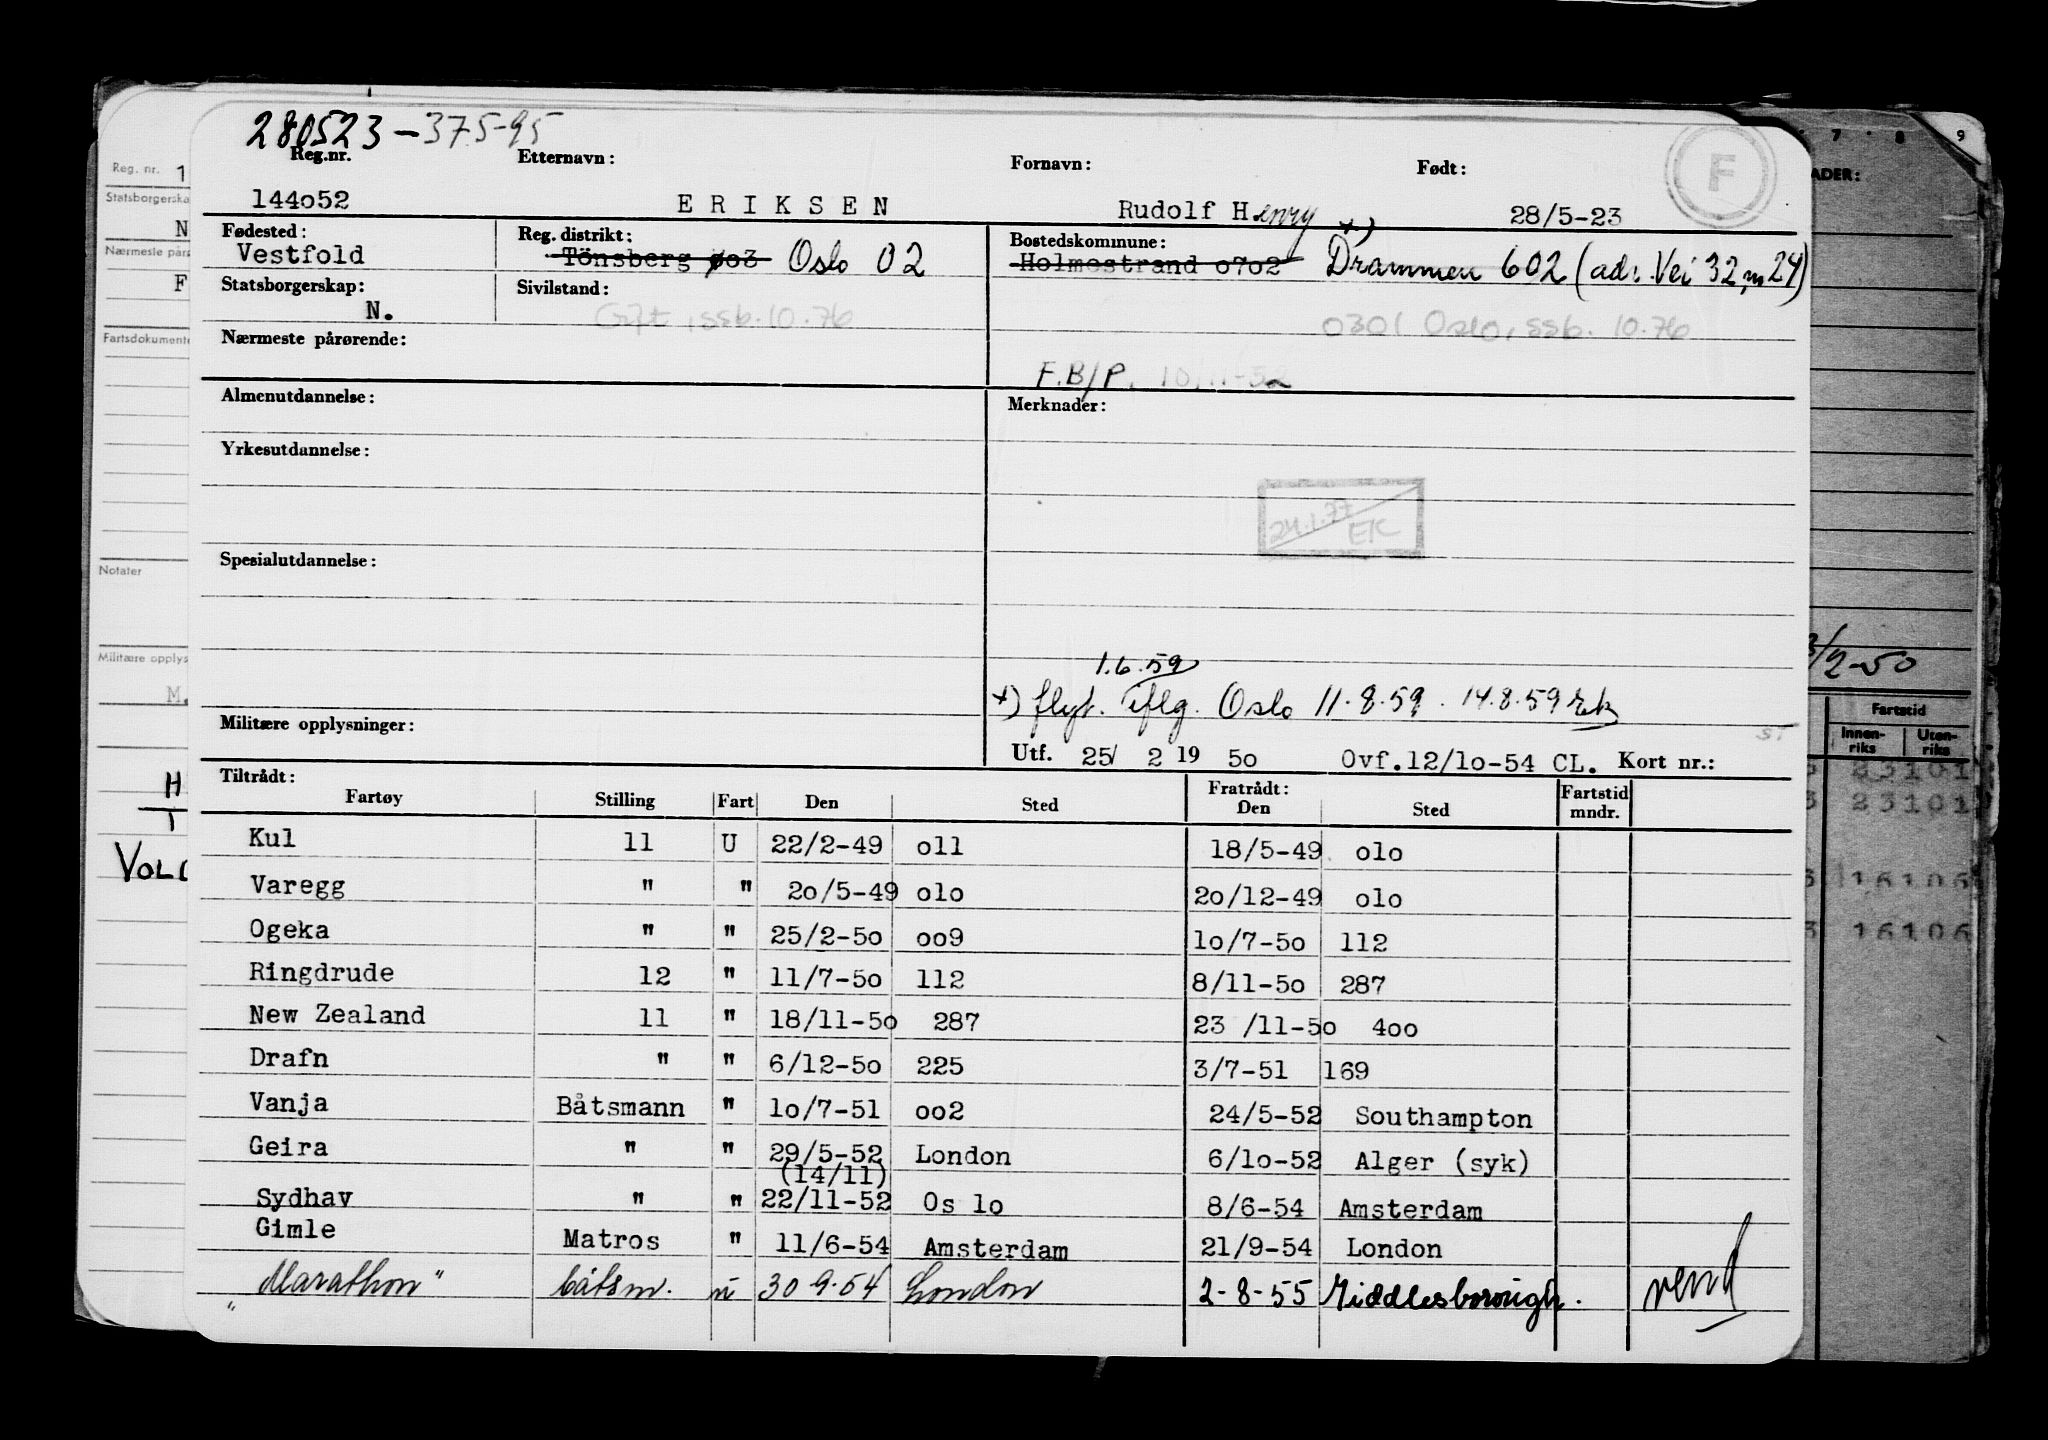 280523-37595
Reg.nr. Etternavn: Fornavn: Født: F
144o52 ERIKSEN Rudolf Henry 28/5-23
Fødested: Reg. distrikt: Bostedskommune: +)
Vestfold Tönsberg øo3 Oslo 02 Holmestrand o7o2 Drammen 602 (adr. Vei 32, 24)
Statsborgerskap: Sivilstand:
N. Gift, ssb. 10.76 0301 Oslo, ssb. 10.76
Nærmeste pårørende:
F.B/P. 10/11-52
Almenutdannelse: Merknader:
Yrkesutdannelse:
24.1.77 EK
Spesialutdannelse:
1.6.59
+) flyt. iflg. Oslo 11.8.59. 14.8.59
Militære opplysninger:
Utf. 25/ 2 19 5o Ovf.12/1o-54 CL. Kort nr.:
Tiltrådt: Fratrådt:
Fartøy Stilling Fart Den Sted Den Sted Fartstid mndr.
Kul 11 U 22/2-49 o11 18/5-49 o1o
Varegg " " 2o/5-49 o1o 2o/12-49 o1o
Ogeka " " 25/2-5o oo9 1o/7-5o 112
Ringdrude 12 " 11/7-5o 112 8/11-5o 287
New Zealand 11 " 18/11-5o 287 23 /11-5o 4oo
Drafn " " 6/12-5o 225 3/7-51 169
Vanja Båtsmann " 1o/7-51 oo2 24/5-52 Southampton
Geira " " 29/5-52 London 6/1o-52 Alger (syk)
(14/11)
Sydhav " " 22/11-52 Os lo 8/6-54 Amsterdam
Gimle Matros " 11/6-54 Amsterdam 21/9-54 London
"Marathon" båtsm. u 30.9.54 London 2-8-55 Middlesborough. vend
Reg. nr. 1
N
Nærmeste
F
Notater
M.
H
T
7 8 9
/2-50
Fartstid
Innenriks Utenriks
23101
23101
16106
16106